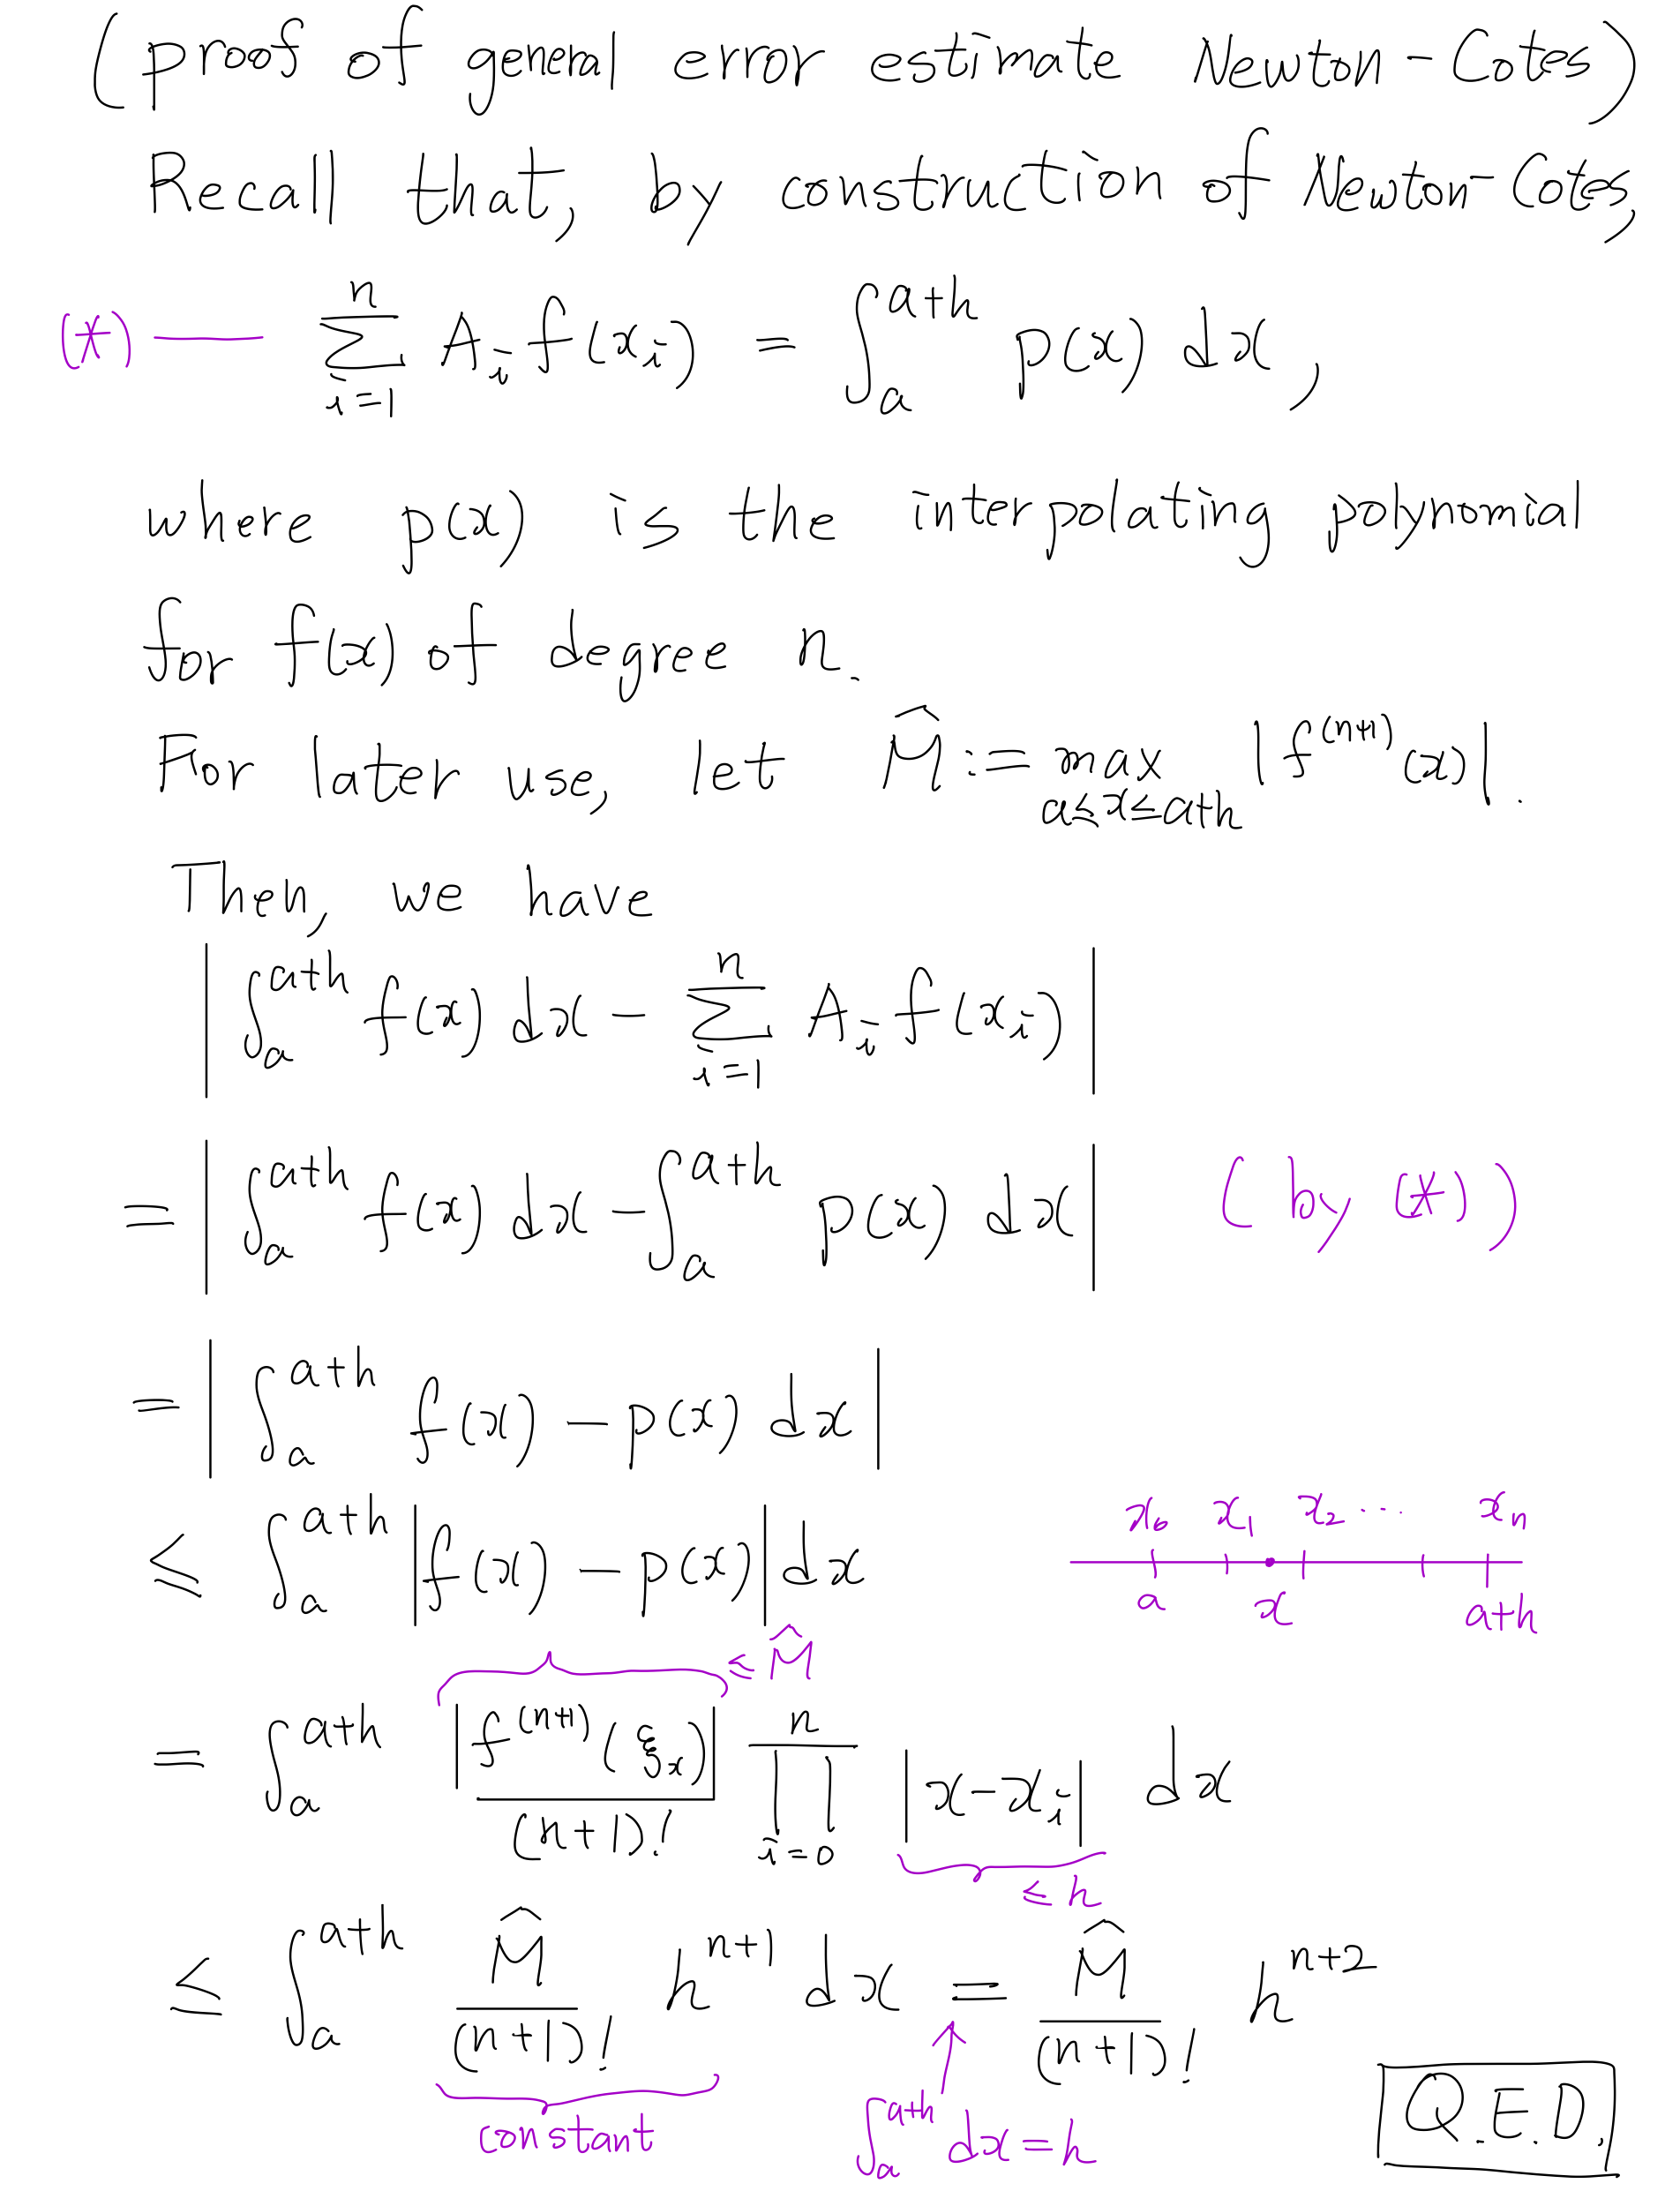 (proof of general error estimate Newton-Cotes)
Recall that, by construction of Newton-Cotes,
(*) — \sum_{i=1}^{n} A_i f(x_i) = \int_a^{a+h} p(x) dx,
where p(x) is the interpolating polynomial
for f(x) of degree n.
For later use, let \hat{M} := \max_{a≤x≤a+h} |f^{(n+1)}(x)|.
Then, we have
|\int_a^{a+h} f(x) dx - \sum_{i=1}^{n} A_i f(x_i)|
= |\int_a^{a+h} f(x) dx - \int_a^{a+h} p(x) dx| (by (*))
= |\int_a^{a+h} f(x) - p(x) dx|
≤ \int_a^{a+h} |f(x) - p(x)| dx
x_0 x_1 x_2 ... x_n
a x a+h
≤ \hat{M}
= \int_a^{a+h} \frac{|f^{(n+1)}(ξ_x)|}{(n+1)!} \prod_{i=0}^{n} |x - x_i| dx
≤ h
≤ \int_a^{a+h} \frac{\hat{M}}{(n+1)!} h^{n+1} dx = \frac{\hat{M}}{(n+1)!} h^{n+2}
constant
\int_a^{a+h} dx = h
Q.E.D.